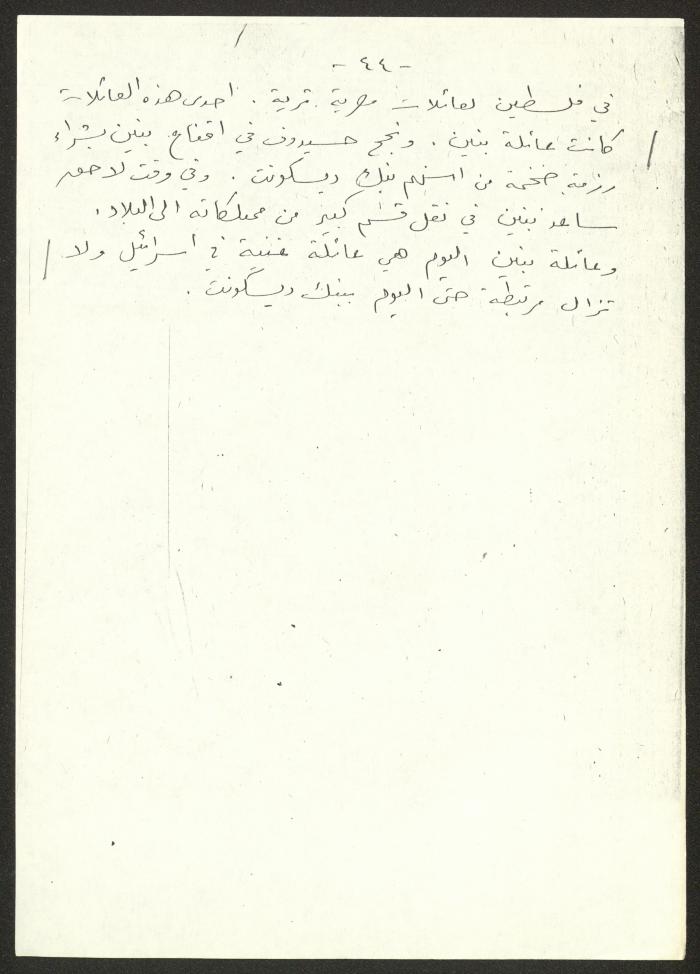 - ٤٤ -
في فلسطين لعائلات مصرية ثرية . احدى هذه العائلات
كانت عائلة بنين . ونجح حسيدوف في اقناع بنين بشراء
رزمة ضخمة من اسهم بنك ديسكونت . وفي وقت لاحق
ساعد بنين في نقل قسم كبير من ممتلكاته الى البلاد ،
وعائلة بنين اليوم هي عائلة غنية في اسرائيل ولا
تزال مرتبطة حتى اليوم ببنك ديسكونت .